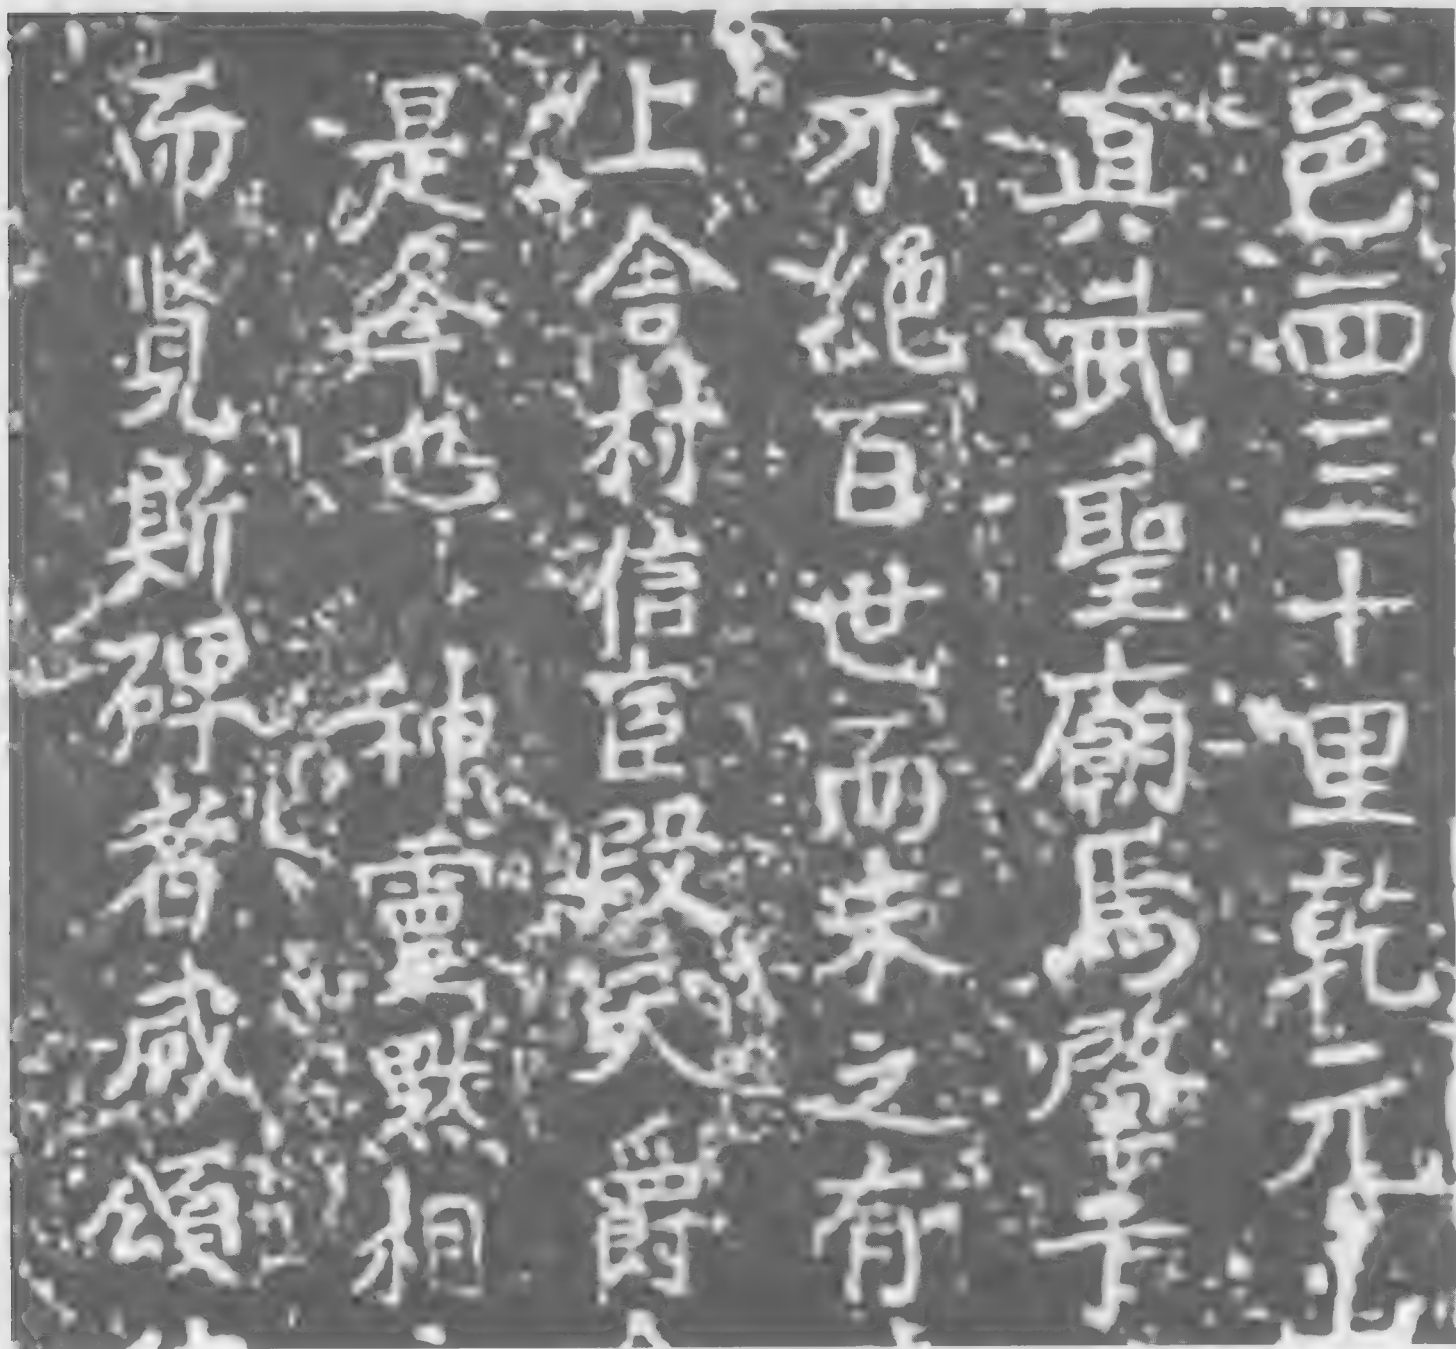 邑西三十里乾元山
真武聖廟馬肇于
不絕百世而未之有
上舍村信官殷㕥爵
是舉也神靈默相
而覽斯碑者咸頌